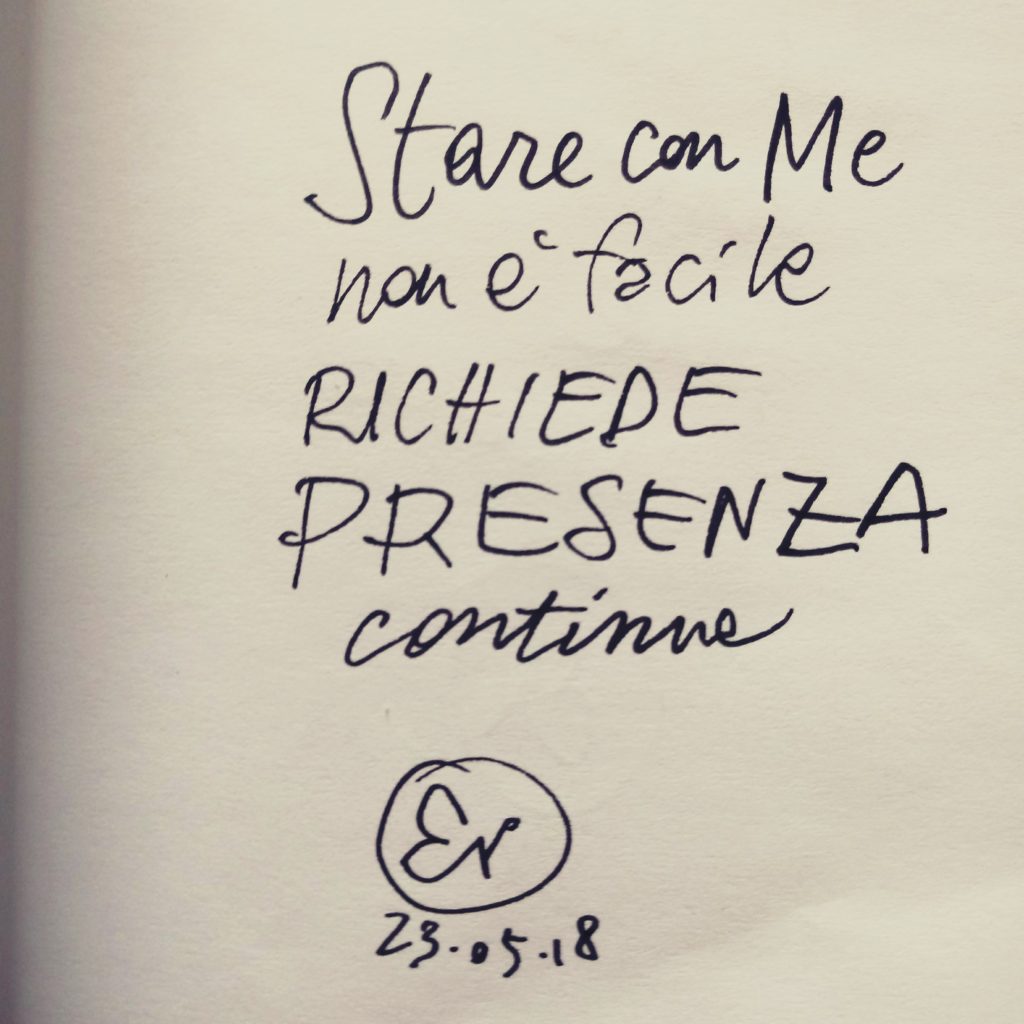 Stare con Me
non è facile
RICHIEDE
PRESENZA
continua
Er
23.05.18